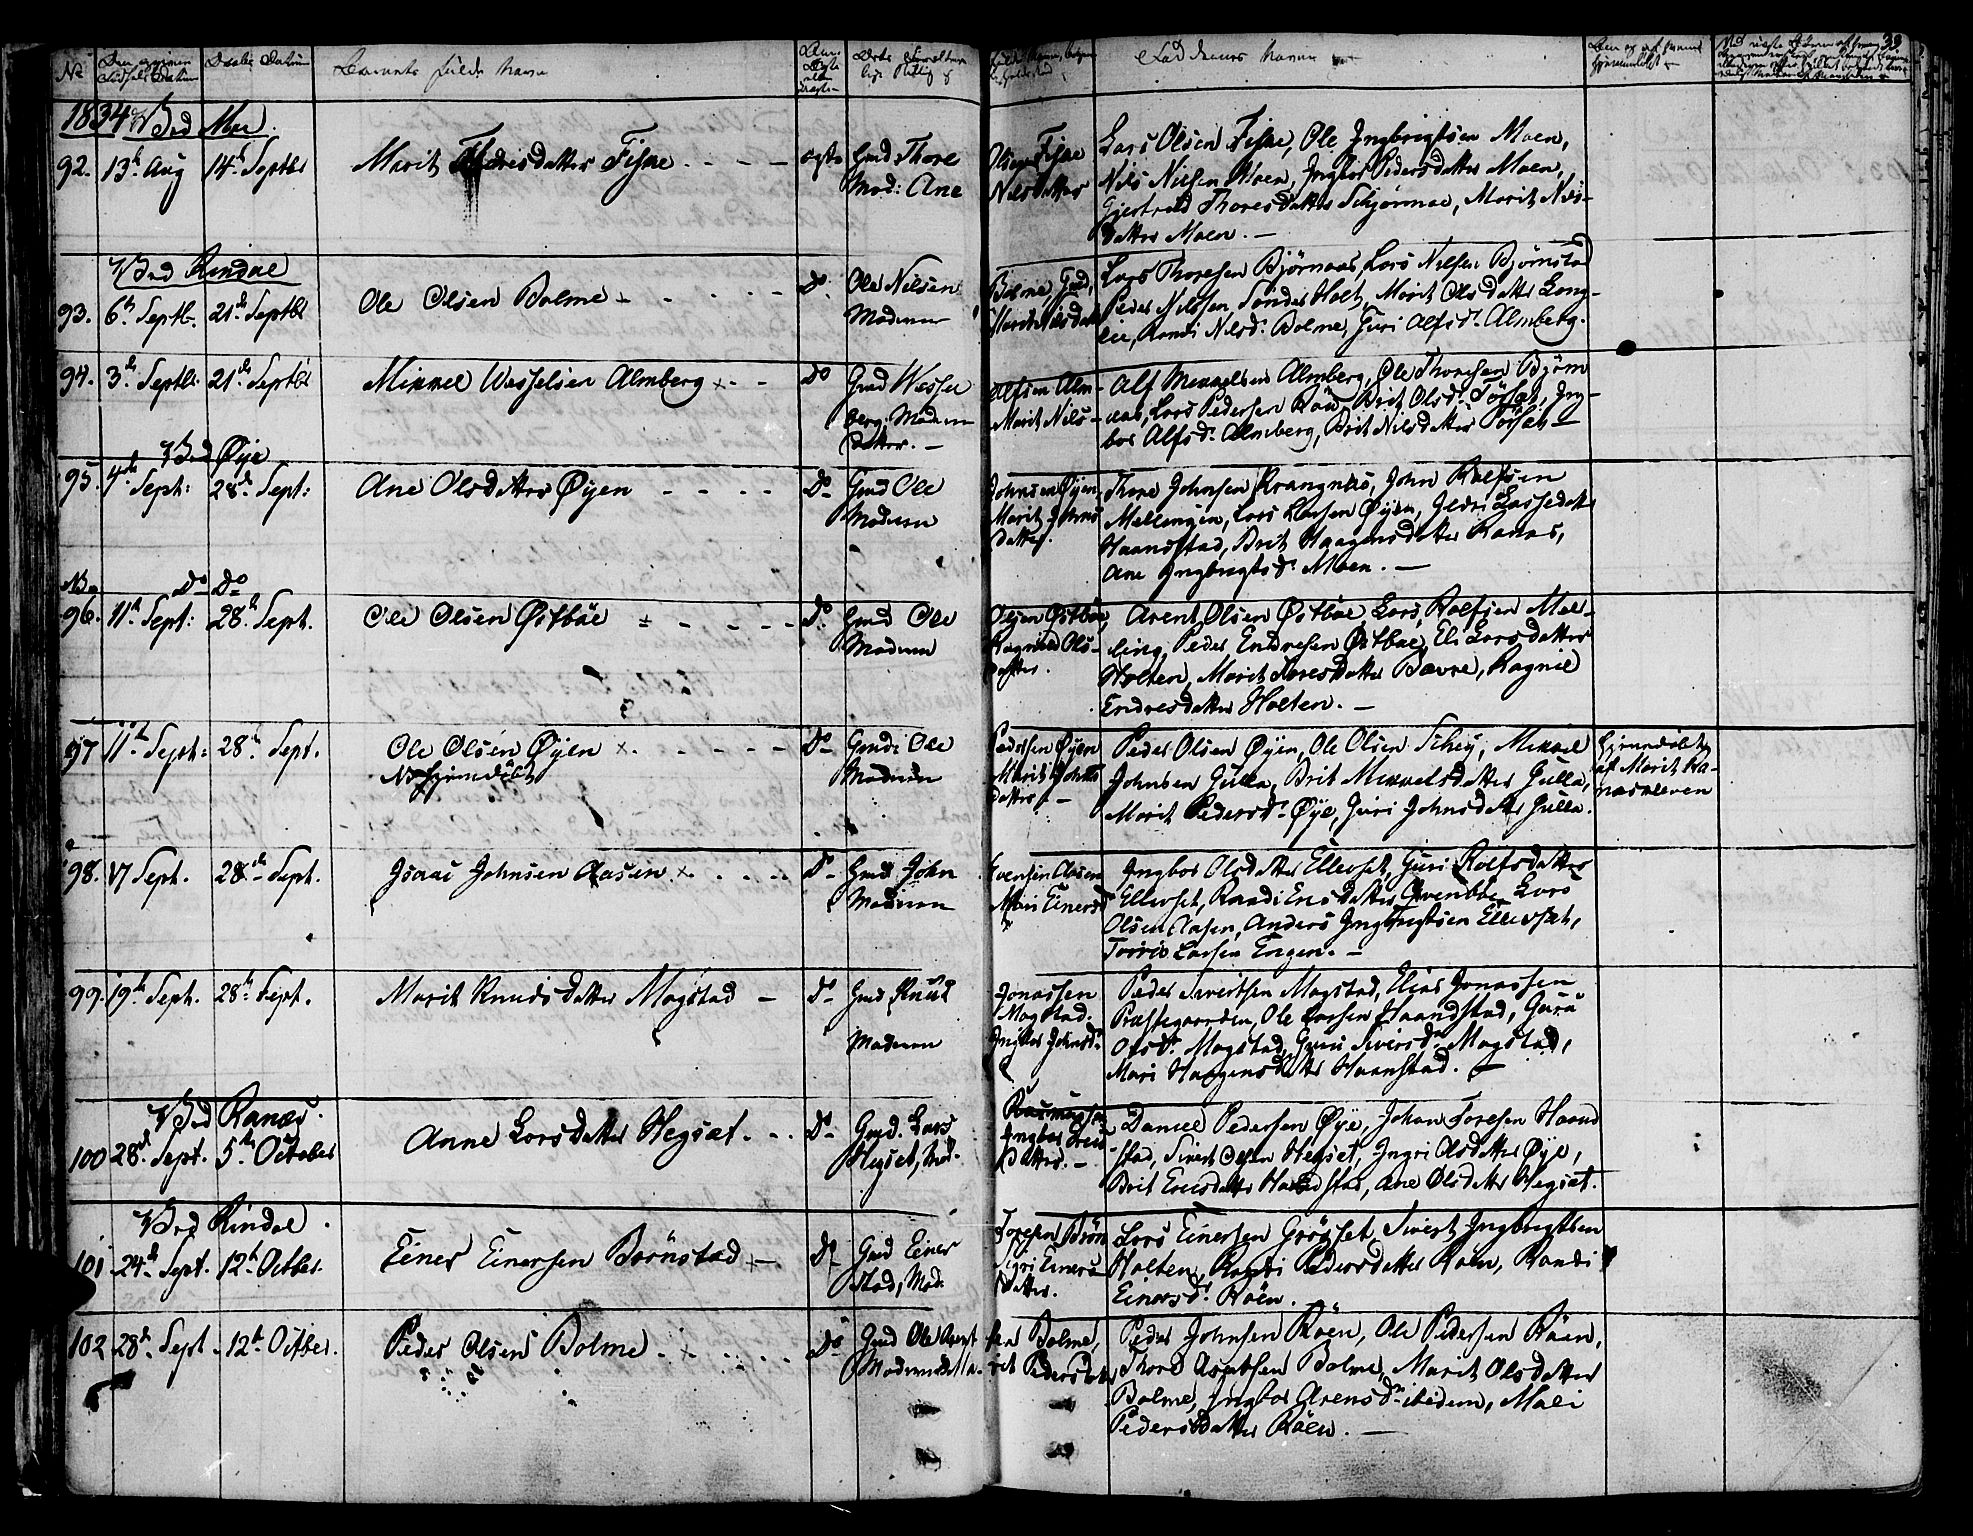 No
Daabs Datum
Barnets fulde Navn
Faddernes Navne
33.
1834 Ved Moe.
92. 13de Aug 14de Septbr Marit Thoresdatter Fiske Do Gmd Thore
Mod: Ane
Olsen Fiske
Nilsdatter
Lars Olsen Fiske, Ole Ingbrigtsen Moen,
Nils Nilsen Moen, Ingbor Pedersdatter Moen,
Gjertrud Thoresdatter Schjermoe, Marit Nils-
datter Moen. —
Ved Rindal
93. 6te Septb. 21de Septbr Ole Olsen Bolme Do Ole Nilsen
Moderen
Bolme, Gmd,
Marit Nilsdatter
Lars Thoresen Bjørnaas, Lars Nilsen Bjørnstad
Peder Nilssen, Sonder Holt, Marit Olsdatter Lang-
lie, Randi Nilsd. Bolme, Guri Alfsd. Almberg.
94. 3de Septbr. 21de Septbr Mikkel Wesselsen Almberg Do Gmd Wessel
berg. Moderen
datter. —
Alfsen Alm-
Marit Nils-
Alf Mikkelsen Almberg, Ole Thoresen Bjørn
aas, Lars Pedersen Røen, Brit Olsd. Tørset, Ing-
bor Alfsd. Almberg, Brit Nilsdatter Tørset —
Ved Øye
95. 7de Sept: 28de Sept: Ane Olsdatter Øyen Do Gmd Ole
Moderen
Johnsen Øyen,
Marit Johns
datter.
Thore Johnsen Krangnes, John Rolfsen
Mellingen, Lars Olsen Øyen, Lassedatter
Haandstad, Brit Haagensdatter Ranas,
Ane Ingbrigtsd. Moen. —
Do Do
96. 11te Sept: 28de Sept. Ole Olsen Østbøe Do Gmd Ole
Moderen
Olsen Østbøe,
Ragnild Ols-
datter.
Arent Olsen Østbøe, Lars Rolfsen Mel-
ling, Peder Endresen Østbøe, Eli Larsdatter
Holten, Marit Toresdatter Bævre, Ragnil
Endresdatter Holten. —
97 11te Sept: 28de Sept. Ole Olsen Øyen Do Gmd: Ole
NB hjemdøbt
Moderen
Pedersen Øyen
Marit Johns
datter. —
Peder Olsen Øyen, Ole Olsen Schey, Mikkel
Johnsen Gulla, Brit Mikkelsdatter Gulla,
Marit Pedersd. Øye, Guri Johnsdatter Gulla.
hjemdøbt
af Marit Ra-
næskleven
98. 17 Sept. 28de Sept. Isaac Johnsen Aasen Do Gmd John
Moderen
Evensen Aasen
Mari Einersd
Ingbor Olsdatter Ellevset, Guri Rolfsdatter
Ellevset, Randi Ericsdatter Lars
Olsen Aasen, Anders Ingbrigtsen Ellevset,
Larsen Engen. —
99. 19de Sept. 28de Sept. Marit Knudsdatter Mogstad — Do Gmd Knud
Moderen
Jonassen
Mogstad.
Ingbor Johnsd.
Peder Sivertsen Mogstad, Elias Jonassen
Præstegaarden, Ole Larsen Haandstad, Guru
Olsdr. Mogstad, Guru Siversdr Mogstad,
Mari Haagensdatter Haanstad. —
Ved Ranæs.
100 28de Sept. 5te October Anne Larsdatter Hegset Do Gmd. Lars
Hegset, Mod.
Rasmussen
Ingbor
datter. —
Daniel Pedersen Øye, Johan Toresen Haand
stad, Sivert Olsen Hegset, Ingri Olsdatter Øye,
Brit Ericsdatter Haandstad, Ane Olsdatter Hegset.
Ved Rindal.
101 24de Sept. 12te Octber. Einer Einersen Børnstad Do Gmd Einer
stad, Mod.
Toresen Børn
Sigri Einers-
datter.
Lars Einersen Grøset, Sivert Ingbrigtsen
Holten, Randi Pedersdatter Røen, Randi
Einersd. Røen.
102 28de Sept. 12te Octber. Peder Olsen Bolme Do Gmd Ole Arent
Moderen Ma-
sen Bolme,
rit Pedersdatter
Peder Johnsen Røen, Ole Pedersen Røen,
Thore Arentsen Bolme, Marit Olsdatter
Bolme, Ingbor Arensdr ibidem, Mali
Pedersdatter Røen. —